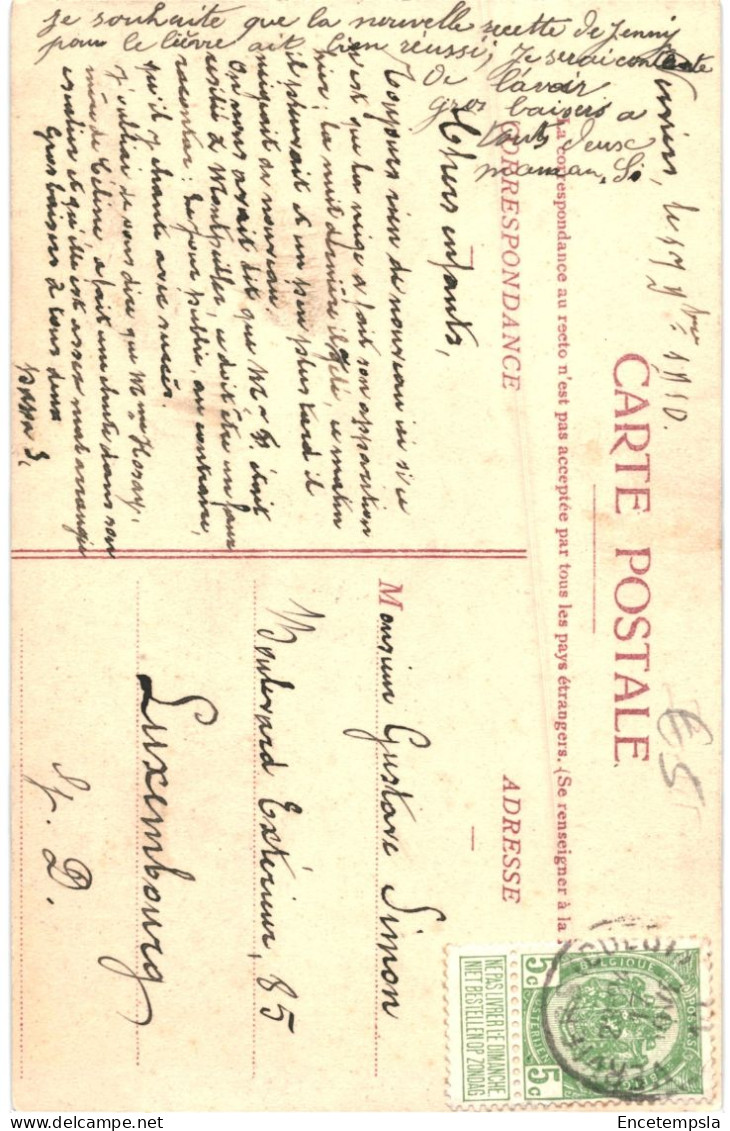 CARTE POSTALE
La correspondance au recto n'est pas acceptée par tous les pays étrangers. (Se renseigner à la
CORRESPONDANCE
ADRESSE
le 17 9bre 1910.
Chers enfants,
Toujours rien de nouveau ici si ce
n'est que la neige a fait son apparition
hier; la nuit dernière il gelé, ce matin
il pleuvait et un peu plus tard il
neigeait de nouveau.
On nous avait dit que Mr G. était
à Montpellier, ce doit être un faux
racontar; le jour publie, au contraire,
qu'il y chante avec succès.
J'oubliai de vous dire que Mme Hosay,
mère de Céline, a fait une chute dans son
escalier et qu'elle est assez mal arrangée
Gros baisers à tous deux
papa S.
Je souhaite que la nouvelle recette de Jenny
pour le lièvre ait bien réussi, je serai contente
de l'avoir
gros baisers a
touts deux
maman, S.
Monsieur Gustave Simon
Boulevard Extérieur, 85
Luxembourg
G. D.
€5
BELGIQUE
POSTES
POSTERIJEN
5c 5c
NE PAS LIVRER LE DIMANCHE
NIET BESTELLEN OP ZONDAG
VERVIERS
(OUEST)
Encetempsla